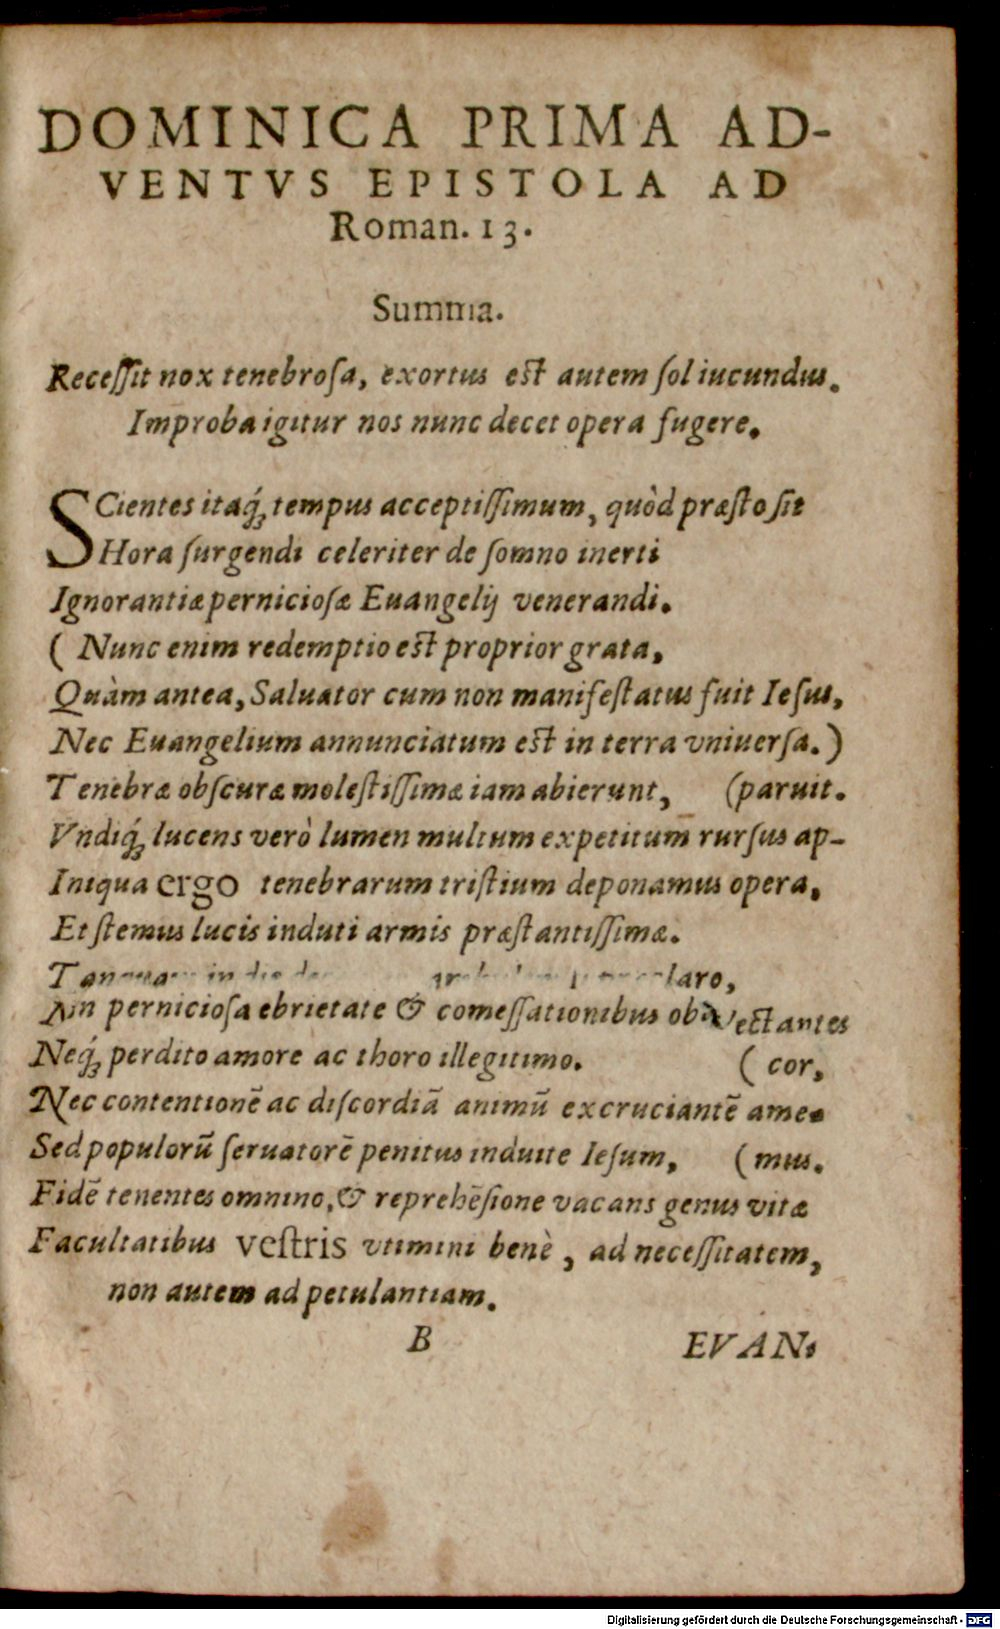 DOMINICA PRIMA AD-
VENTVS EPISTOLA AD
Roman. 13.
Summa.
Receſſit nox tenebroſa, exortus eſt autem ſol iucundus.
Improba igitur nos nunc decet opera fugere.
SCientes itaq́; tempus acceptiſſimum, quòd præſto ſit
Hora ſurgendi celeriter de ſomno inerti
Ignorantiæ pernicioſæ Euangelij venerandi.
( Nunc enim redemptio eſt proprior grata,
Quàm antea, Saluator cum non manifeſtatus fuit Ieſus,
Nec Euangelium annunciatum eſt in terra vniuerſa.)
Tenebræ obſcuræ moleſtiſſimæ iam abierunt, (paruit.
Vndiq́; lucens verò lumen multum expetitum rurſus ap-
Iniqua ergo tenebrarum triſtium deponamus opera,
Et ſtemus lucis induti armis præſtantiſſimæ.
in die
pernicioſa ebrietate & comeſſationibus
Neq́; perdito amore ac thoro illegitimo. ( cor,
Nec contentionē ac diſcordiā animū excruciantē ame-
Sed populorū ſeruatorē penitus induite Ieſum, ( mus.
Fidē tenentes omnino, & reprehēſione vacans genus vitæ
Facultatibus veſtris vtimini benè, ad neceſſitatem,
non autem ad petulantiam.
B EVAN-
Digitalisierung gefördert durch die Deutsche Forschungsgemeinschaft - DFG